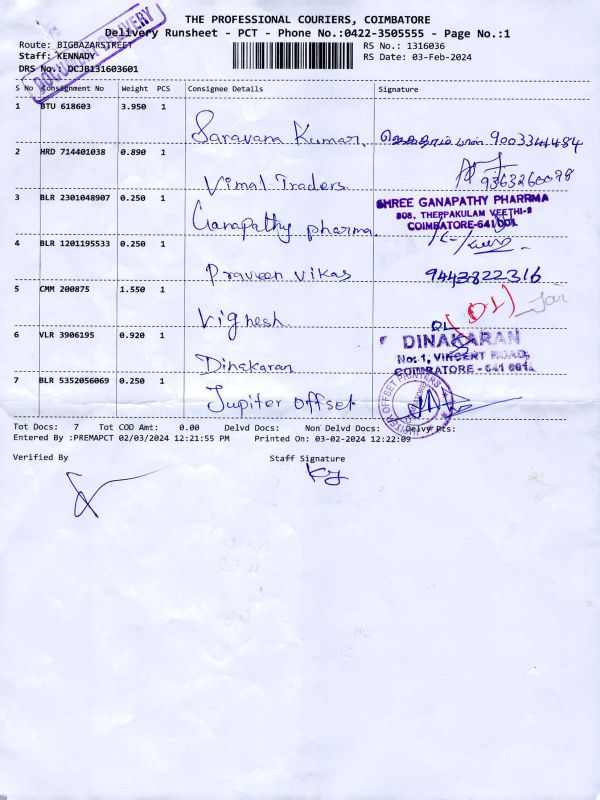 THE PROFESSIONAL COURIERS, COIMBATORE
Delivery Runsheet - PCT - Phone No.:0422-3505555 - Page No.:1
Route: BIGBAZARSTREET
RS No.: 1316036
Staff: KENNADY
RS Date: 03-Feb-2024
DRS No.: DCJB131603601
DOCUMENT DELIVERY
S No Consignment No Weight PCS Consignee Details Signature
1 BTU 618603 3.950 1
Saravana Kumar. 9003344484
2 HRD 714401038 0.890 1
Vimal Traders 9363260098
3 BLR 2301048907 0.250 1
Ganapathy pharma.
SHREE GANAPATHY PHARRMA
808, THEPPAKULAM VEETHI-2
COIMBATORE-641 001.
4 BLR 1201195533 0.250 1
Praveen Vikas 9443822316
5 CMM 200875 1.550 1
Vighesh (D1)
6 VLR 3906195 0.920 1
Dinakaran
DINAKARAN
No: 1, VINCENT ROAD,
COIMBATORE - 641 001.
7 BLR 5352056069 0.250 1
Jupiter offset
JUPITER OFFSET PRINTERS
Tot Docs: 7 Tot COD Amt: 0.00 Delvd Docs: Non Delvd Docs: Delvy Pts:
Entered By :PREMAPCT 02/03/2024 12:21:55 PM Printed On: 03-02-2024 12:22:09
Verified By Staff Signature